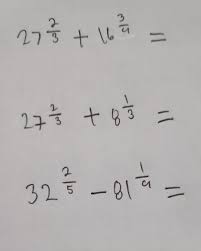 27^{2/3} + 16^{3/4} =
27^{2/3} + 8^{1/3} =
32^{2/5} - 81^{1/4} =